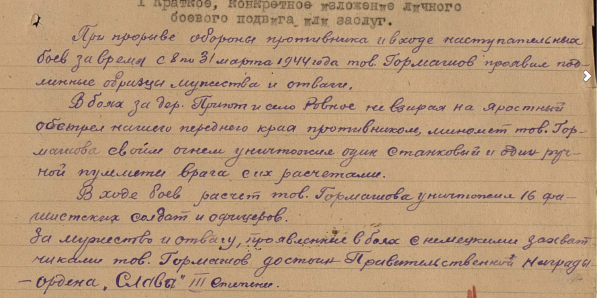 I Краткое, конкретное изложение личного
боевого подвига или заслуг.
При прорыве обороны противника и в ходе наступательных
боев за время с 8 по 31 марта 1944 года тов. Гормашов проявил под-
линные образцы мужества и отваги.
В боях за дер. и село Ровное не взирая на яростный
обстрел нашего переднего края противником, миномет тов. Гор-
машова своим огнем уничтожил один станковый и один руч-
ной пулеметы врага с их расчетами.
В ходе боев расчет тов. Гормашова уничтожил 16 фа-
шистских солдат и офицеров.
За мужество и отвагу, проявленные в боях с немецкими захват
чиками тов. Гормашов достоин Правительственной награды
– ордена „Славы" III степени.